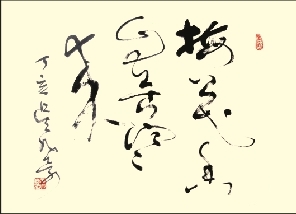 梅花香
自苦寒
来
丁亥